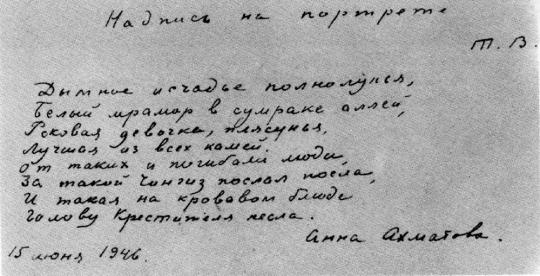 Надпись на портрете
Т. В.
Дымное исчадье полнолунья,
Белый мрамор в сумраке аллей,
Роковая девочка, плясунья,
Лучшая из всех камей.
От таких и погибали люди,
За такой Чингиз послал посла,
И такая на кровавом блюде
Голову Крестителя несла.
Анна Ахматова.
15 июня 1946.